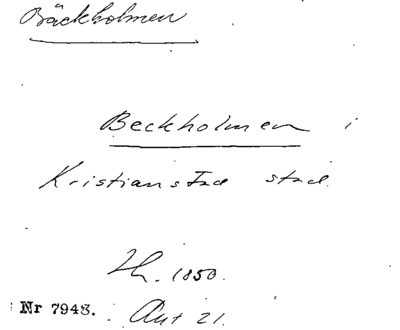 Bäckholmen
Beckholmen i
Kristianstad stad.
Hh. 1850.
Nr 7943. Ant 21.